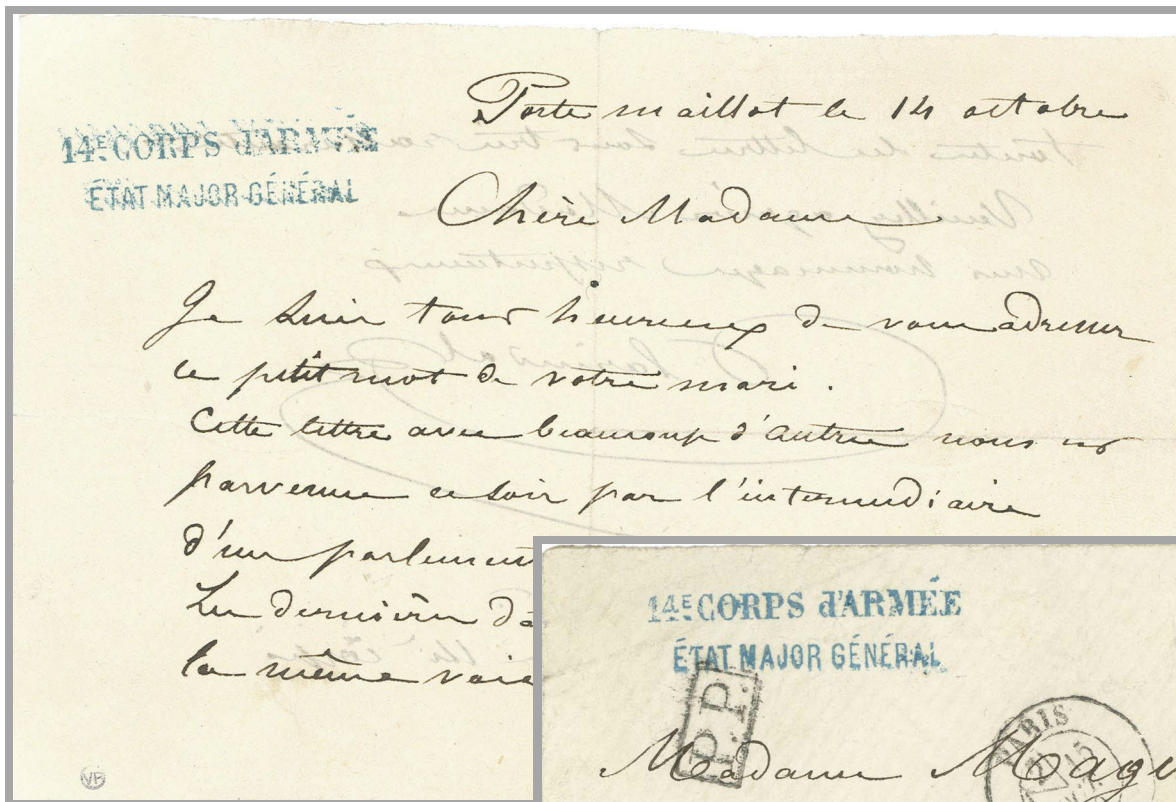 14E. CORPS d'ARMÉE
ÉTAT MAJOR GÉNÉRAL
Porte maillot le 14 octobre
Chère Madame
Je suis tout heureux de vous adresser
ce petit mot de votre mari.
Cette lettre avec beaucoup d'autres nous est
parvenue ce soir par l'intermédiaire
d'un parlement
Les dernières
la même voie
VB
14E. CORPS d'ARMÉE
ÉTAT MAJOR GÉNÉRAL
P.P.
PARIS
Madame